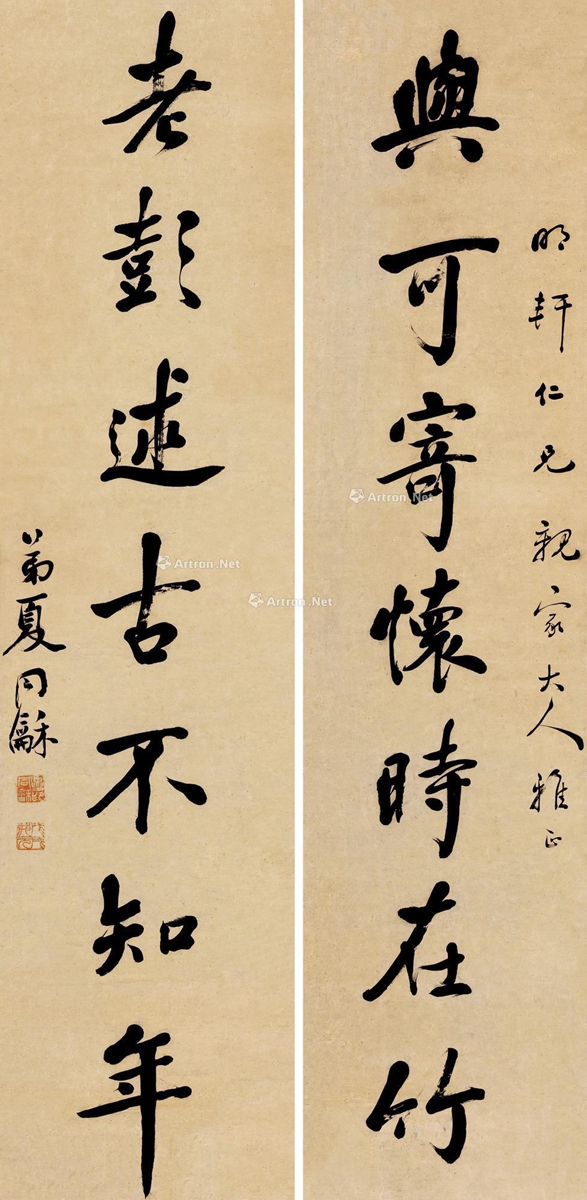 明軒仁兄親家大人雅正
與可寄懷時在竹
老彭述古不知年
弟夏同龢
Artron.Net
Artron.Net
Artron.Net